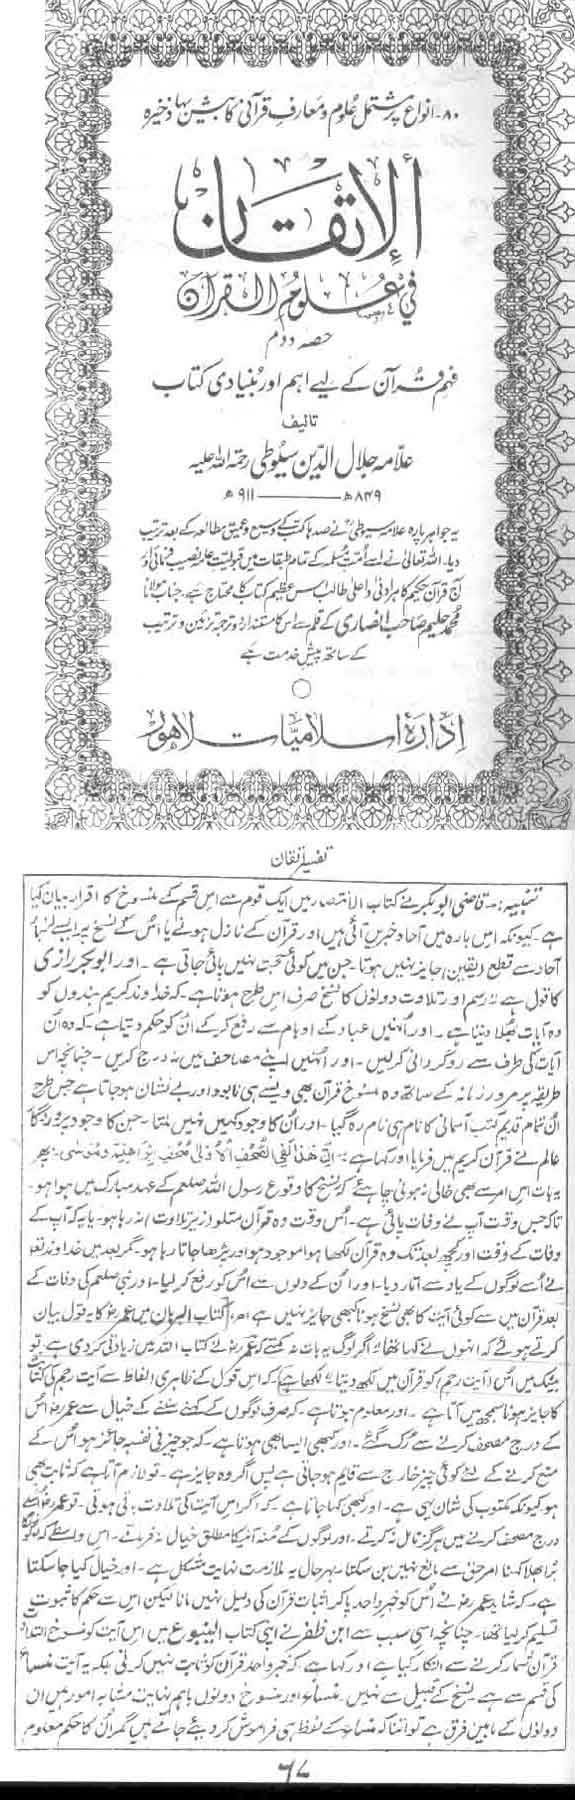 ۸۰۔ انواع پر مشتمل علوم و معارفِ قرآنی کا بیش بہا ذخیرہ
الإتقان
في علوم القرآن
حصہ دوم
فہم قرآن کے لیے اہم اور بنیادی کتاب
تالیف
علامہ جلال الدین سیوطی رحمۃ اللہ علیہ
۸۴۹ھ ـــــــ ۹۱۱ھ
یہ جواہر پارہ علامہ سیوطی نے صدہا کتب کے وسیع و عمیق مطالعہ کے بعد ترتیب
دیا۔ اللہ تعالیٰ نے اسے اُمتِ مُسلمہ کے تمام طبقات میں قبولیتِ عامہ نصیب فرمائی اور
آج قرآن حکیم کا ہر ادنیٰ و اعلیٰ طالب اس عظیم کتاب کا محتاج ہے، جناب مولانا
محمد حلیم صاحب انصاری کے قلم سے اس کا مستند اردو ترجمہ تزئین و ترتیب
کے ساتھ پیش خدمت ہے
ادارۂ اسلامیات لاہور
تفسیر اتقان
تنبیہ :۔ قاضی ابو بکر نے کتاب الانتصار میں ایک قوم سے اس قسم کے منسوخ کا اقرار بیان کیا
ہے۔ کیونکہ اس بارہ میں آحاد خبریں آئی ہیں اور قرآن کے نازل ہونے یا اُس کے نسخ پر ایسے
آحاد سے قطع (یقین) جایز نہیں ہوتا۔ جن میں کوئی حجت نہیں پائی جاتی ہے۔ اور ابوبکر رازی
کا قول ہے "رسم اور تلاوت دونوں کا نسخ صرف اس طرح ہوتا ہے۔ کہ خداوند کریم بندوں کو
وہ آیات بھلا دیتا ہے۔ اور اُنہیں عباد کے اوہام سے رفع کر کے اُن کو حکم دیتا ہے۔ کہ وہ اُن
آیات کی طرف سے روگردانی کر لیں۔ اور اُنہیں اپنے مصاحف میں نہ درج کریں۔ چنانچہ اس
طریقہ پر مرور زمانہ کے ساتھ وہ منسوخ قرآن بھی ویسے ہی نابود اور بے نشان ہو جاتا ہے جس طرح
ان تمام قدیم کتب آسمانی کا نام ہی نام رہ گیا۔ اور اُن کا وجود کہیں نہیں ملتا۔ جن کا وجود پروردگار
عالم نے قرآن کریم میں فرمایا اور کہا ہے: اِنَّ هٰذَا لَفِی الصُّحُفِ الْاُوْلٰی صُحُفِ اِبْرَاهِیْمَ وَمُوْسٰی، پھر
یہ بات اس امر سے بھی خالی نہ ہونی چاہئے کہ نسخ کا وقوع رسول اللہ صلعم کے عہد مبارک میں ہوا ہو۔
تاکہ جس وقت آپ نے وفات پائی ہے۔ اُس وقت وہ قرآن متلو (زیر تلاوت) نہ رہا ہو۔ یا یہ کہ آپ کے
وفات کے وقت اور کچھ بعد تک وہ قرآن لکھا ہوا موجود ہو اور پڑھا جاتا رہا ہو۔ مگر بعد میں خداوند تعالیٰ
نے اُسے لوگوں کے یاد سے اُتار دیا۔ اور اُن کے دلوں سے اُس کو رفع کر لیا۔ اور نبی صلعم کی وفات کے
بعد قرآن میں سے کوئی آیت کا بھی نسخ ہونا کبھی جایز نہیں ہے" اھ، کتاب البرہان میں عمرؓ کا یہ قول بیان
کرتے ہوئے کہ انہوں نے کہا تھا "اگر لوگ یہ بات نہ کہتے کہ عمرؓ نے کتاب اللہ میں زیادتی کر دی ہے تو
بیشک میں اُس (آیت رجم) کو قرآن میں لکھ دیتا" لکھا ہے کہ اس قول کے ظاہری الفاظ سے آیت رجم کی کتابت
کا جایز ہونا سمجھ میں آتا ہے۔ اور معلوم ہوتا ہے۔ کہ صرف لوگوں کے کہنے سننے کے خیال سے عمرؓ اُس
کے درج مصحف کرنے سے رُک گئے۔ اور کبھی ایسا بھی ہوتا ہے۔ کہ جو چیز فی نفسہ جائز ہو اُس کے
منع کرنے کے لئے کوئی چیز خارج سے قایم ہو جاتی ہے پس اگر وہ جایز ہے۔ تو لازم آتا ہے کہ ثابت بھی
ہو کیونکہ مکتوب کی شان یہی ہے۔ اور کبھی کہا جاتا ہے کہ اگر اس آیت کی تلاوت باقی ہوتی۔ تو عمرؓ اُسے
درج مصحف کرنے میں ہرگز تامل نہ کرتے۔ اور لوگوں کے مُنہ آنیکا مطلق خیال نہ فرماتے۔ اس واسطے کہ لوگوں کا
بُرا بھلا کہنا امر حق سے مانع نہیں بن سکتا۔ بہر حال یہ ملازمت نہایت مشکل ہے۔ اور خیال کیا جا سکتا
ہے۔ کہ شاید عمرؓ نے اُس کو خبر واحد پا کر اثبات قرآن کی دلیل نہیں مانا لیکن اس سے حکم کا ثبوت
تسلیم کر لیا تھا۔ چنانچہ اسی سبب سے ابن ظفر نے اپنی کتاب الینبوع میں اس آیت کو منسوخ التلاوۃ
قرآن شمار کرنے سے انکار کیا ہے اور کہا ہے کہ خبر واحد قرآن کو ثابت نہیں کرتی بلکہ یہ آیت منساء
کی قسم سے ہے نسخ کے قبیل سے نہیں۔ منساء اور منسوخ دونوں باہم نہایت مشابہ امور ہیں ان
دونوں کے مابین فرق ہے تو اتنا کہ منساء کے لفظ ہی فراموش کر دیئے جاتے ہیں مگر ان کا حکم معلوم
۶۷